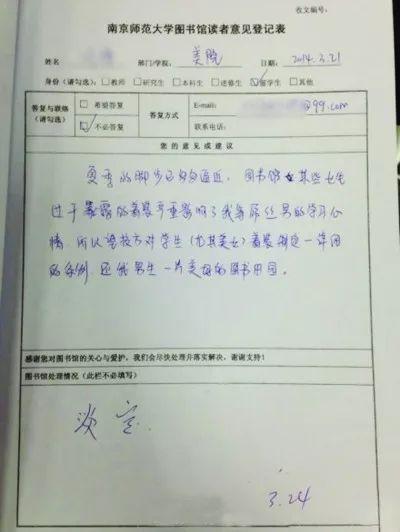 收文编号：
南京师范大学图书馆读者意见登记表
姓名
部门/学院： 美院
日期： 2014.3.21
身份（请勾选） □教师 □研究生 □本科生 □进修生 ☑留学生 □其他
答复与联络（请勾选）
□ 希望答复
☑ 不必答复
答复方式
E-mail: @qq.com
联系电话：
您的意见或建议
夏季的脚步已匆匆逼近，图书馆某些女生
过于暴露的着装严重影响了我等屌丝男的学习心
情，所以望校方对学生（尤其美女）着装制定一
的条例，还我男生一片美好的图书田园。
感谢您对图书馆的关心与爱护，我们会尽快处理并落实解决，谢谢支持！
图书馆处理情况（此栏不必填写）
淡定.
3.24